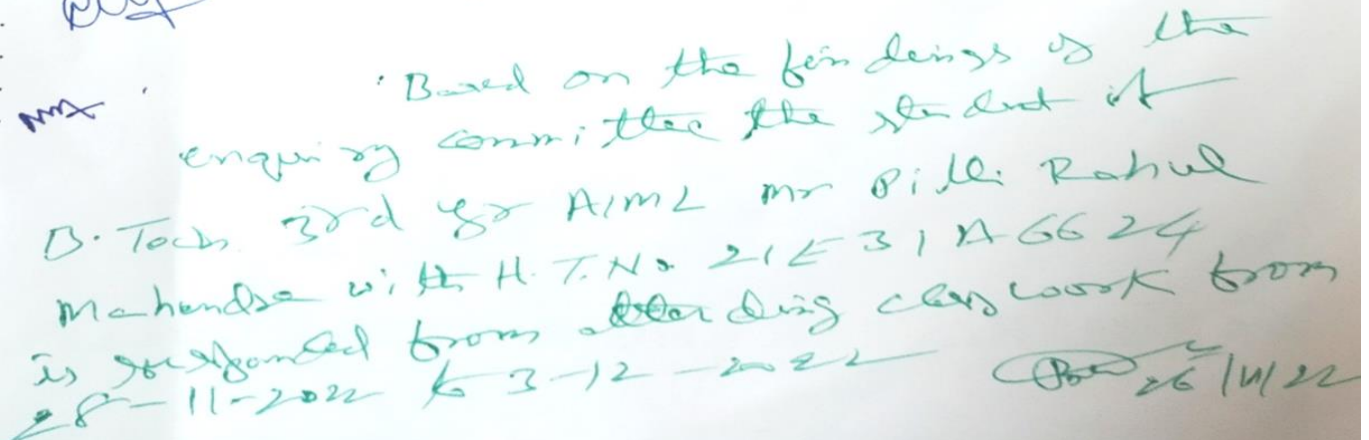 Based on the findings of the
enquiry committee the student of
B. Tech 3rd yr AIML Mr Pilli Rahul
Mahendra with H.T.No 21E31A6624
is suspended from attending class work from
28-11-2022 to 3-12-2022
26/11/22